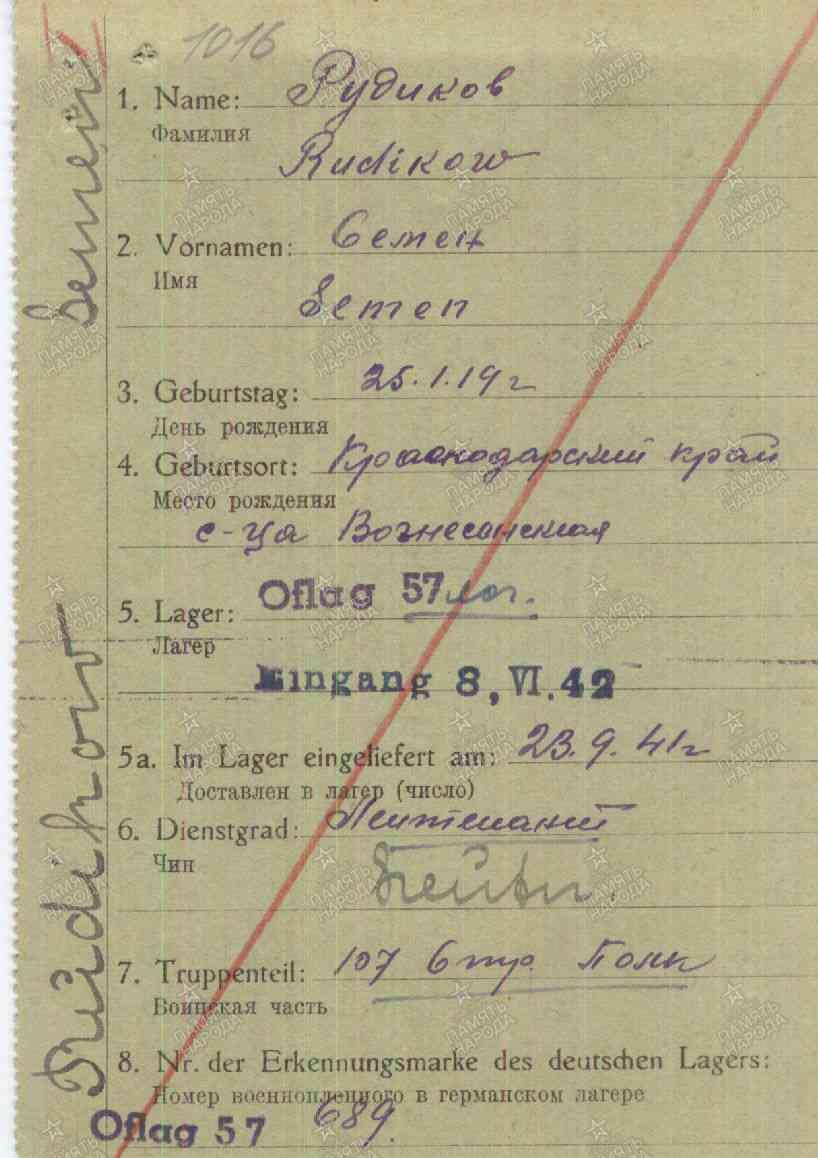 1016
1. Name: Рудиков
Фамилия
Rudikow
2. Vornamen: Семен
Имя
Semen
3. Geburtstag: 25.1.19 г
День рождения
4. Geburtsort: Краснодарский край
Место рождения
с-ца Вознесенская
5. Lager: Oflag 57
Лагер
Eingang 8, VI. 42
5a. Im Lager eingeliefert am: 23.9.41г
Доставлен в лагер (число)
6. Dienstgrad: Лейтенант
Чин
7. Truppenteil: 107 Стр. Полк
Воинская часть
8. Nr. der Erkennungsmarke des deutschen Lagers:
Номер военнопленного в германском лагере
Oflag 57 689.
Rudikow Semen
ПАМЯТЬ НАРОДА